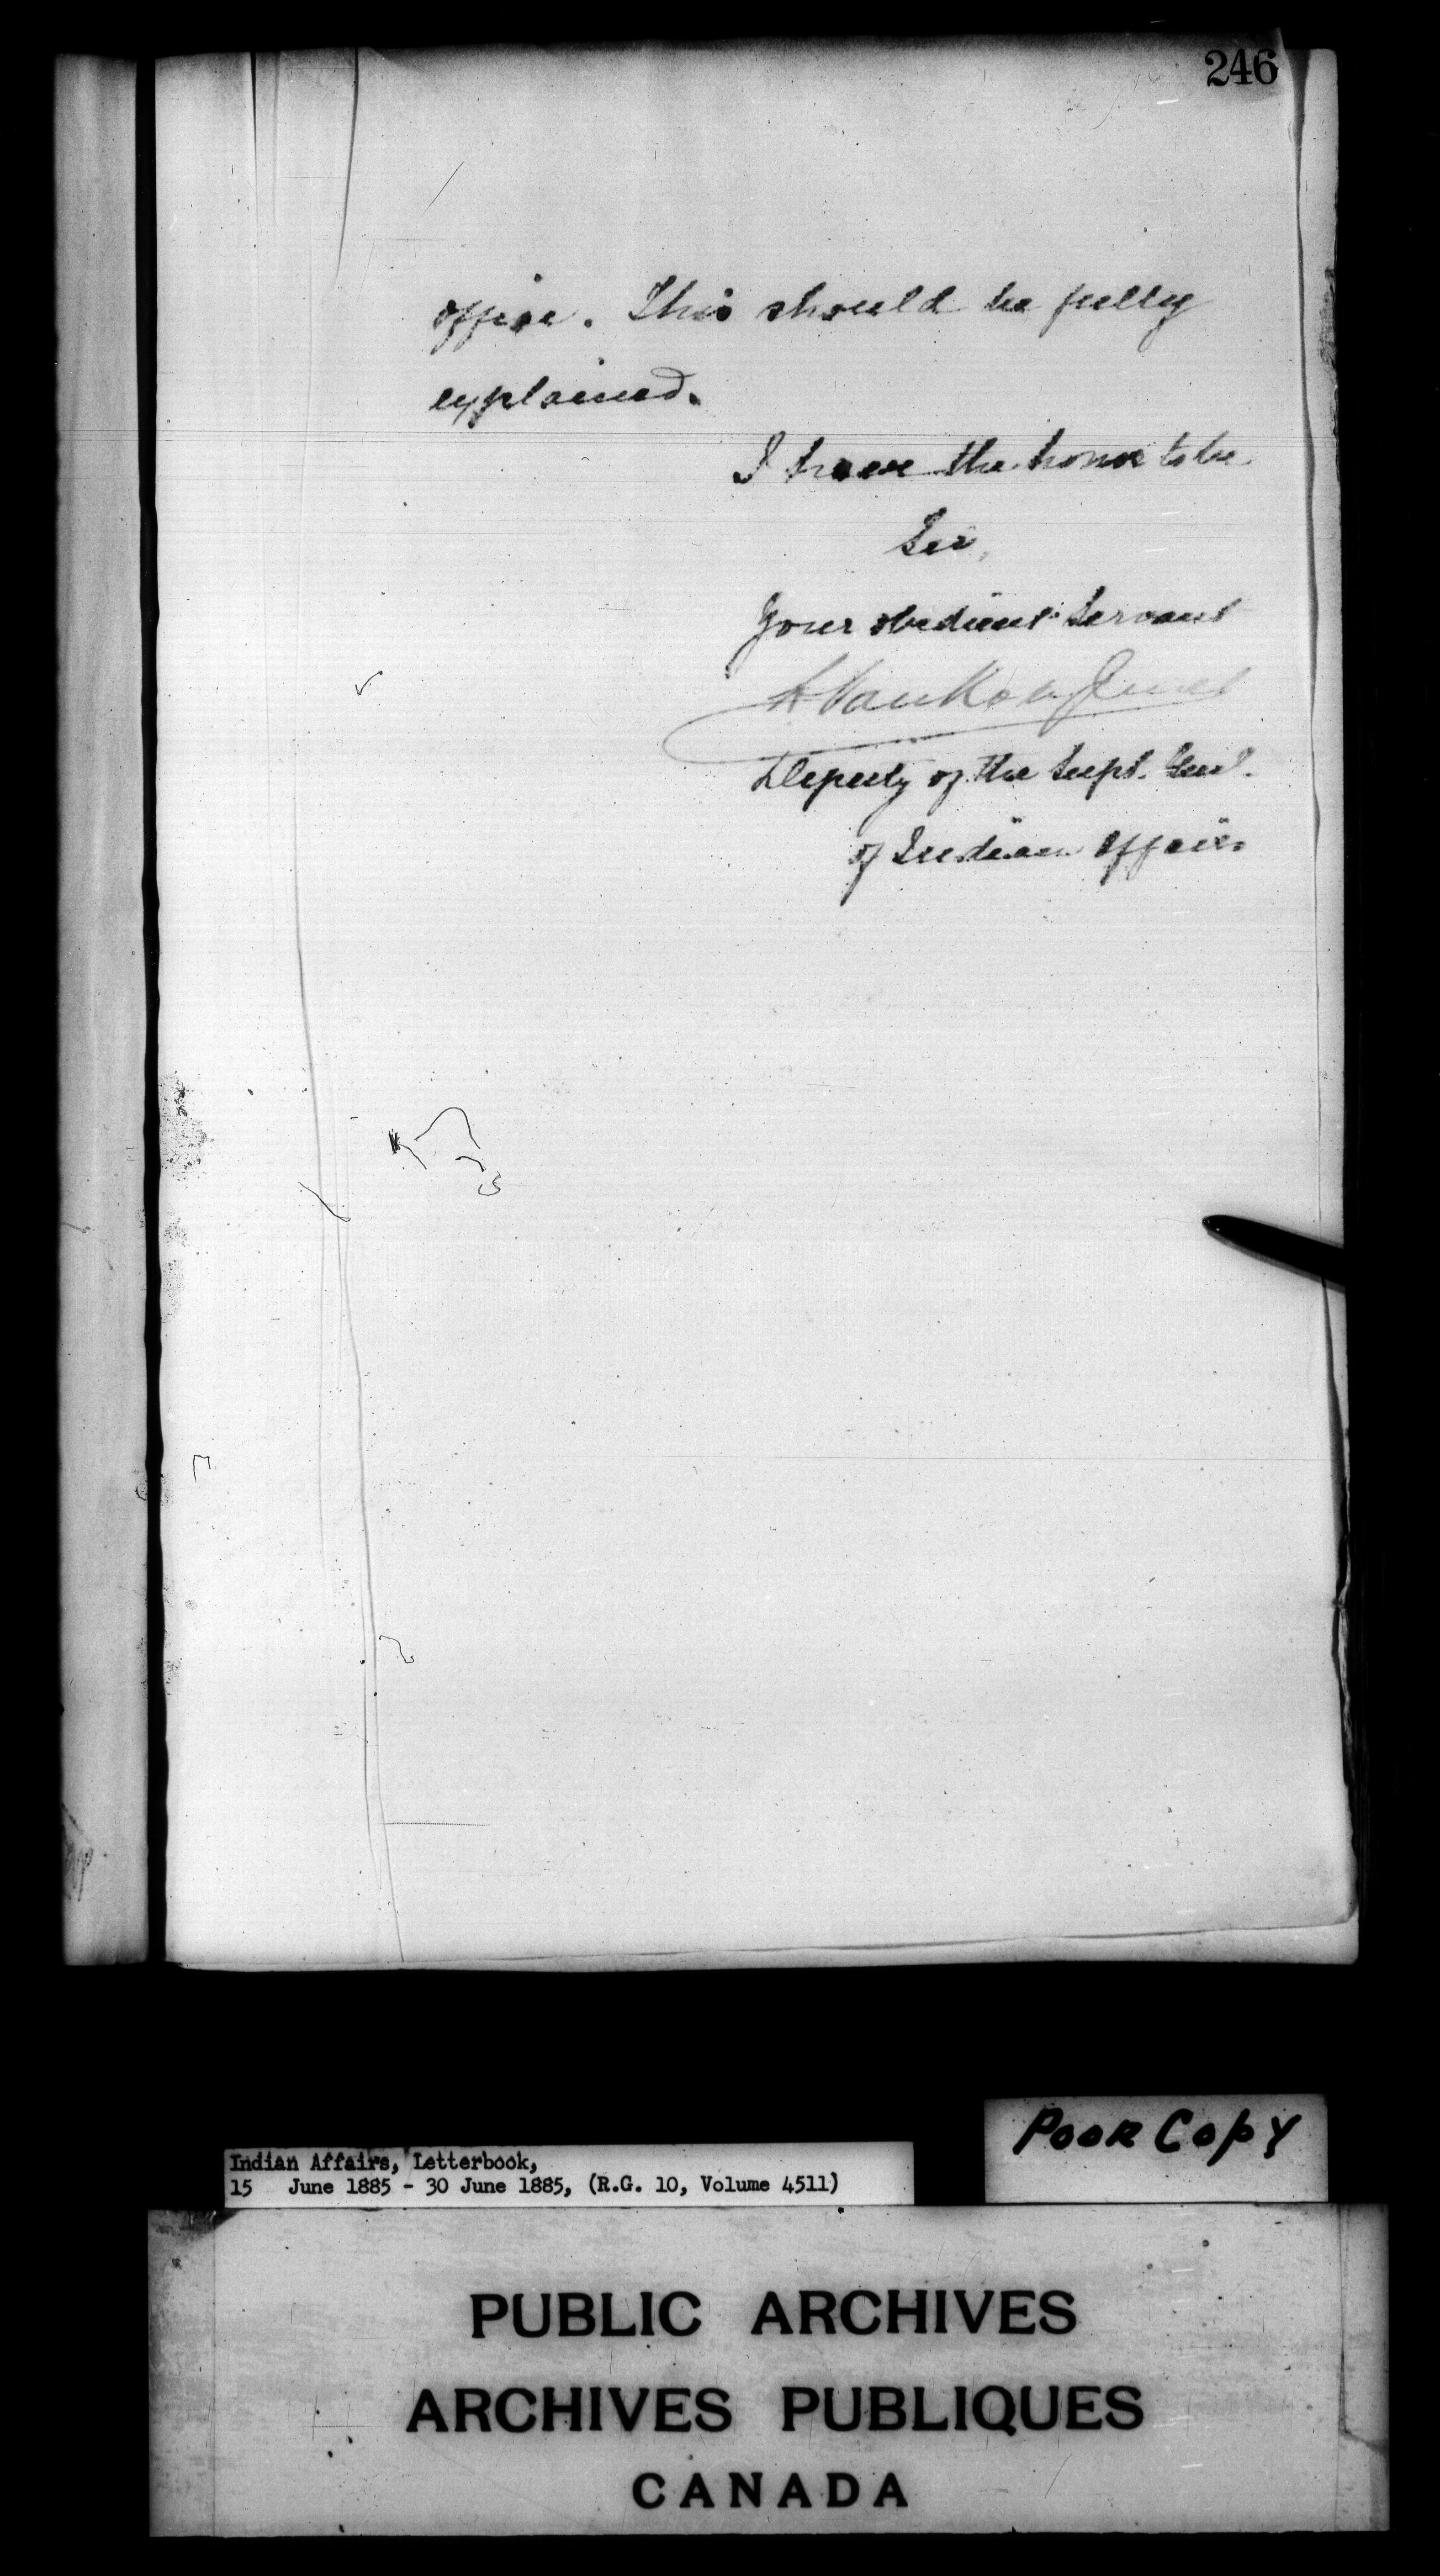 246
office. This should be fully
explained.
I have the honor to be
Sir,
Your obedient Servant
L. VanKoughnet
Deputy of the Supt. Genl.
of Indian Affairs
Poor Copy
Indian Affairs, Letterbook,
15 June 1885 - 30 June 1885, (R.G. 10, Volume 4511)
PUBLIC ARCHIVES
ARCHIVES PUBLIQUES
CANADA